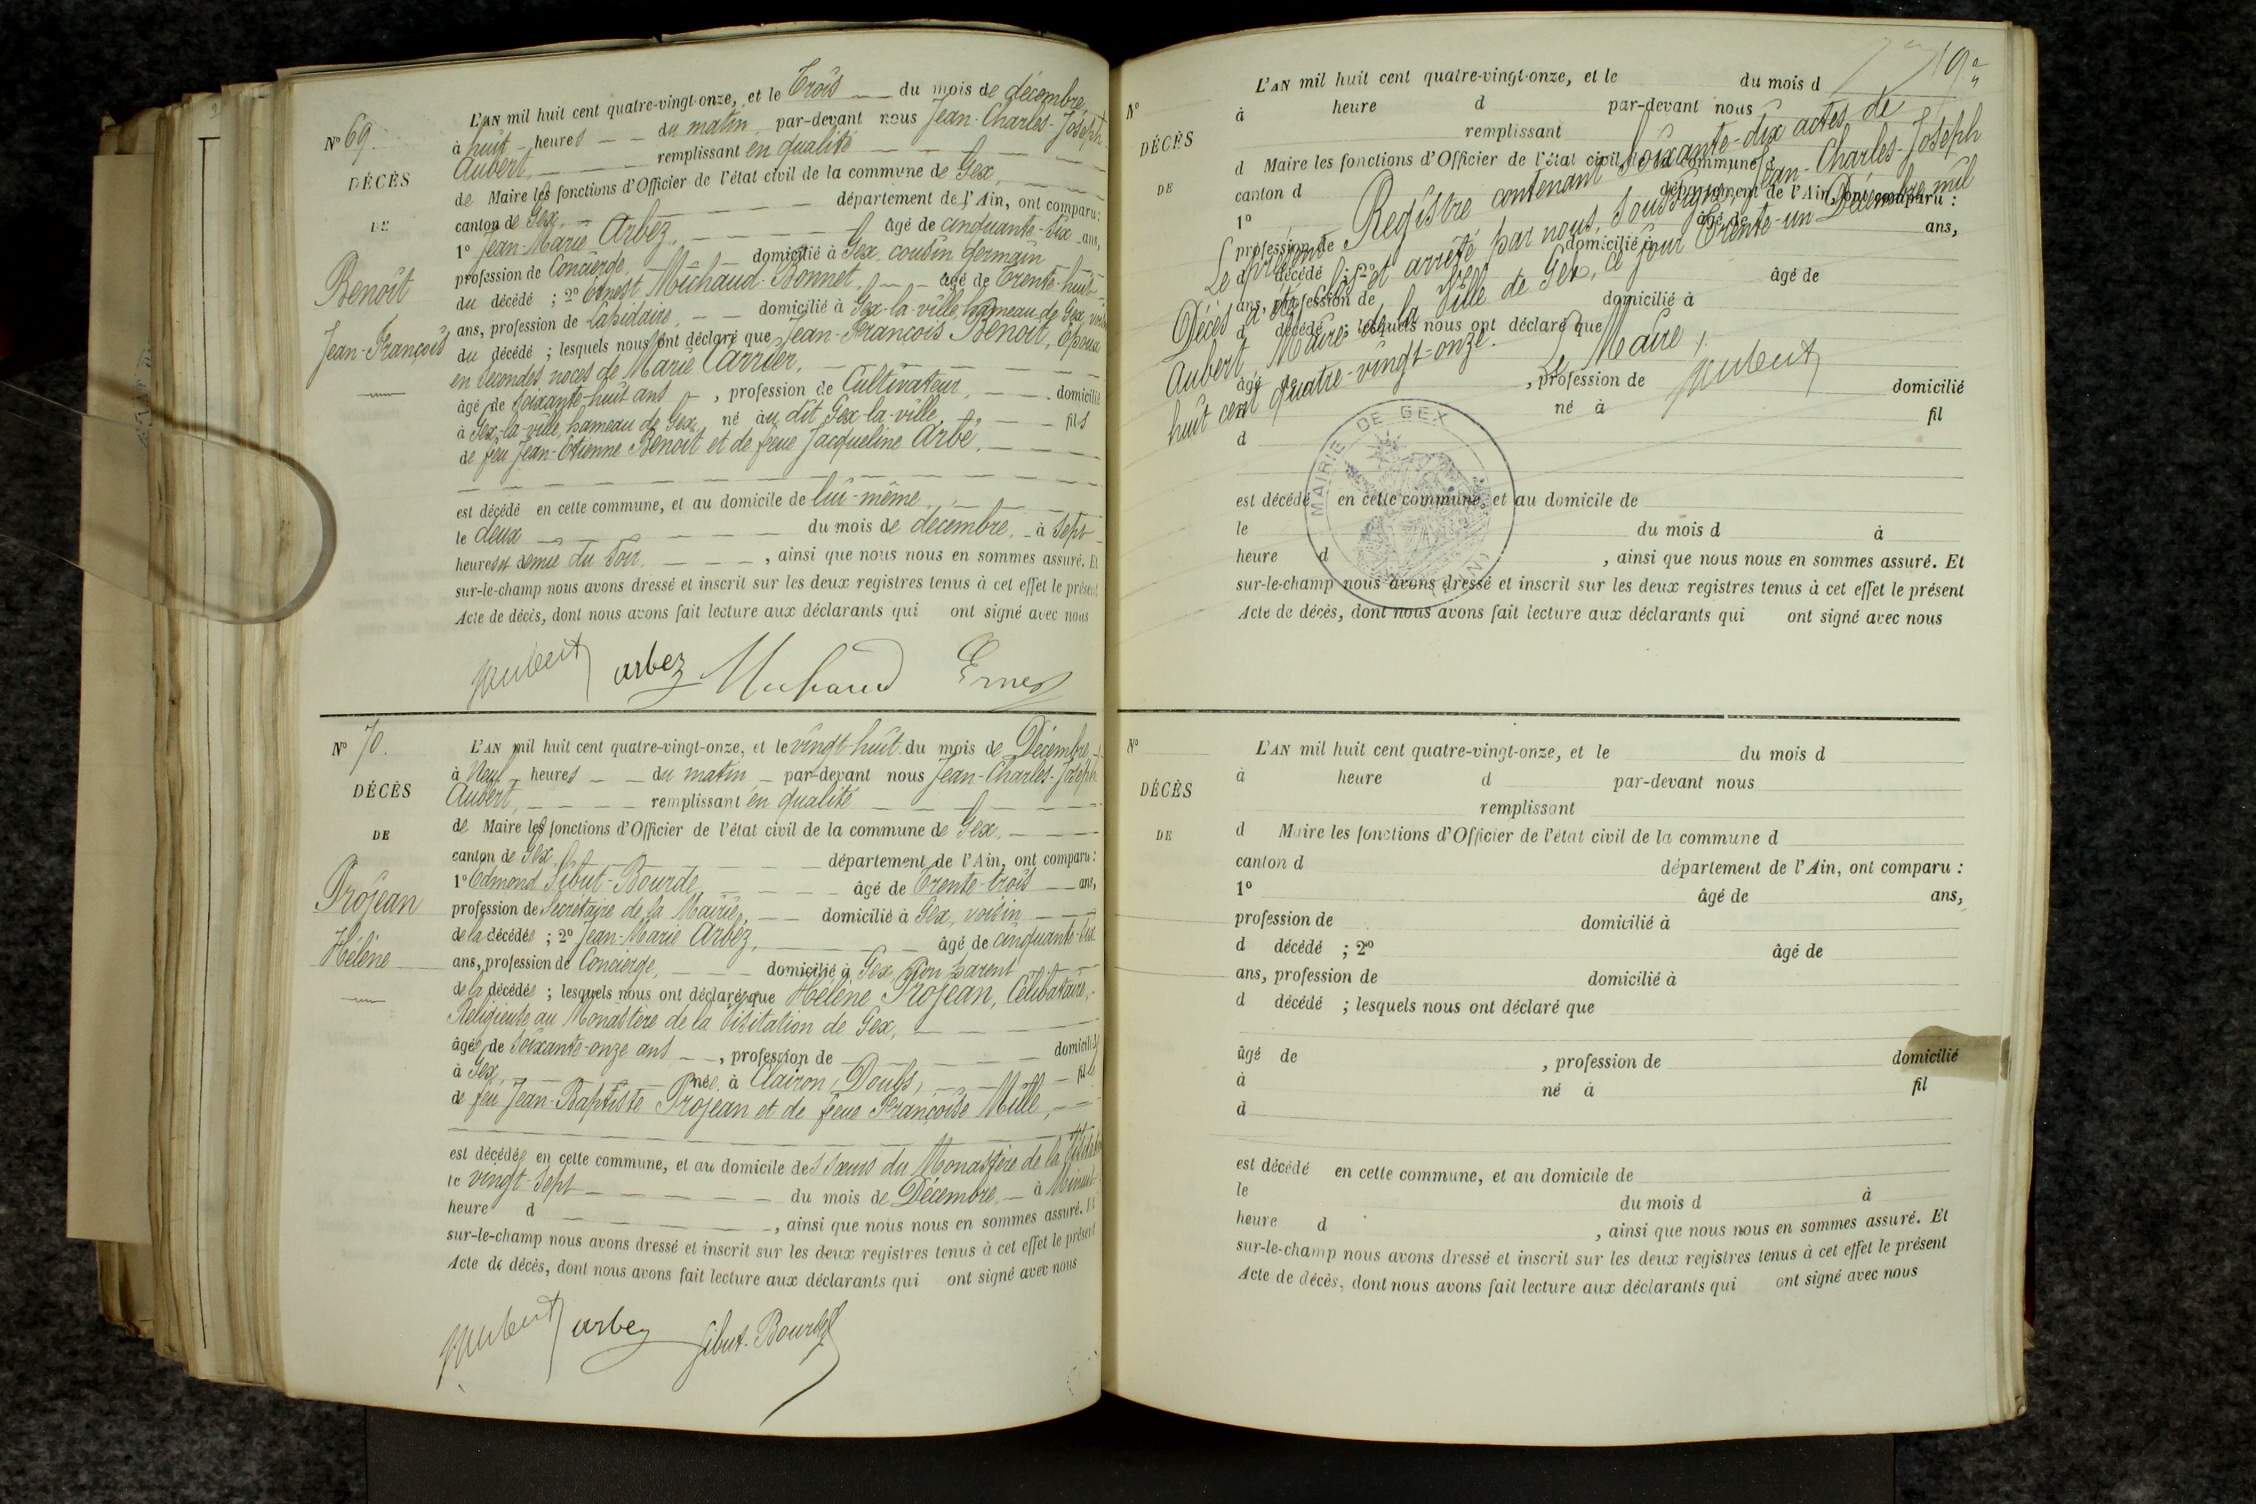 N° 69.
DÉCÈS
DE
Benoit
Jean-François
L'AN mil huit cent quatre-vingt-onze, et le Trois du mois de décembre,
à huit heures du matin par-devant nous Jean-Charles-Joseph
Aubert, remplissant en qualité
de Maire les fonctions d'Officier de l'état civil de la commune de Gex,
canton de Gex, département de l'Ain, ont comparu :
1° Jean-Marie Arbez, âgé de cinquante-six ans,
profession de Concierge, domicilié à Gex, cousin germain
du décédé ; 2° Ernest Michaud-Bonnet, âgé de trente-huit
ans, profession de lapidaire, domicilié à Gex-la-ville, hameau de Gex,
du décédé ; lesquels nous ont déclaré que Jean-François Benoit, époux
en secondes noces de Marie Carrier,
âgé de soixante-huit ans, profession de Cultivateur, domicilié
à Gex-la-ville, hameau de Gex, né au dit Gex-la-ville, fils
de feu Jean-Etienne Benoit et de feue Jacqueline Arbé,
est décédé en cette commune, et au domicile de lui-même,
le deux du mois de décembre, à sept
heures et demie du soir, ainsi que nous nous en sommes assuré. Et
sur-le-champ nous avons dressé et inscrit sur les deux registres tenus à cet effet le présent
Acte de décès, dont nous avons fait lecture aux déclarants qui ont signé avec nous
Aubert arbez Michaud Ernest
N° 70.
DÉCÈS
DE
Projean
Hélène
L'AN mil huit cent quatre-vingt-onze, et le vingt-huit du mois de Décembre,
à Neuf heures du matin par-devant nous Jean-Charles-Joseph
Aubert, remplissant en qualité
de Maire les fonctions d'Officier de l'état civil de la commune de Gex,
canton de Gex, département de l'Ain, ont comparu :
1° Edmond Sibut-Bourde, âgé de trente-trois ans,
profession de Secrétaire de la Mairie, domicilié à Gex, voisin
de la décédée ; 2° Jean-Marie Arbez, âgé de cinquante-six
ans, profession de Concierge, domicilié à Gex, non parent
de la décédée ; lesquels nous ont déclaré que Hélène Projean, Célibataire,
Religieuse au Monastère de la Visitation de Gex,
âgée de soixante-onze ans, profession de domiciliée
à Gex, née à Clairon, Doubs, fille
de feu Jean-Baptiste Projean et de feue Françoise Mille,
est décédée en cette commune, et au domicile des sœurs du Monastère de la Visitation
le vingt-sept du mois de Décembre, à Minuit
heure d , ainsi que nous nous en sommes assuré. Et
sur-le-champ nous avons dressé et inscrit sur les deux registres tenus à cet effet le présent
Acte de décès, dont nous avons fait lecture aux déclarants qui ont signé avec nous
Aubert arbez Sibut-Bourde
19
N°
DÉCÈS
DE
L'AN mil huit cent quatre-vingt-onze, et le du mois d
à heure d par-devant nous
remplissant
d Maire les fonctions d'Officier de l'état civil de la commune d
canton d département de l'Ain, ont comparu :
1° âgé de ans,
profession de domicilié à
d décédé ; 2° âgé de
ans, profession de domicilié à
d décédé ; lesquels nous ont déclaré que
âgé de , profession de domicilié
à né à fil
d
Le présent Registre contenant soixante-dix actes de
Décès a été clos et arrêté par nous, soussigné, Jean-Charles-Joseph
Aubert, Maire de la Ville de Gex, ce jour trente-un Décembre mil
huit cent quatre-vingt-onze.
Le Maire,
Aubert
MAIRIE DE GEX
(AIN)
est décédé en cette commune, et au domicile de
le du mois d à
heure d , ainsi que nous nous en sommes assuré. Et
sur-le-champ nous avons dressé et inscrit sur les deux registres tenus à cet effet le présent
Acte de décès, dont nous avons fait lecture aux déclarants qui ont signé avec nous
N°
DÉCÈS
DE
L'AN mil huit cent quatre-vingt-onze, et le du mois d
à heure d par-devant nous
remplissant
d Maire les fonctions d'Officier de l'état civil de la commune d
canton d département de l'Ain, ont comparu :
1° âgé de ans,
profession de domicilié à
d décédé ; 2° âgé de
ans, profession de domicilié à
d décédé ; lesquels nous ont déclaré que
âgé de , profession de domicilié
à né à fil
d
est décédé en cette commune, et au domicile de
le du mois d à
heure d , ainsi que nous nous en sommes assuré. Et
sur-le-champ nous avons dressé et inscrit sur les deux registres tenus à cet effet le présent
Acte de décès, dont nous avons fait lecture aux déclarants qui ont signé avec nous